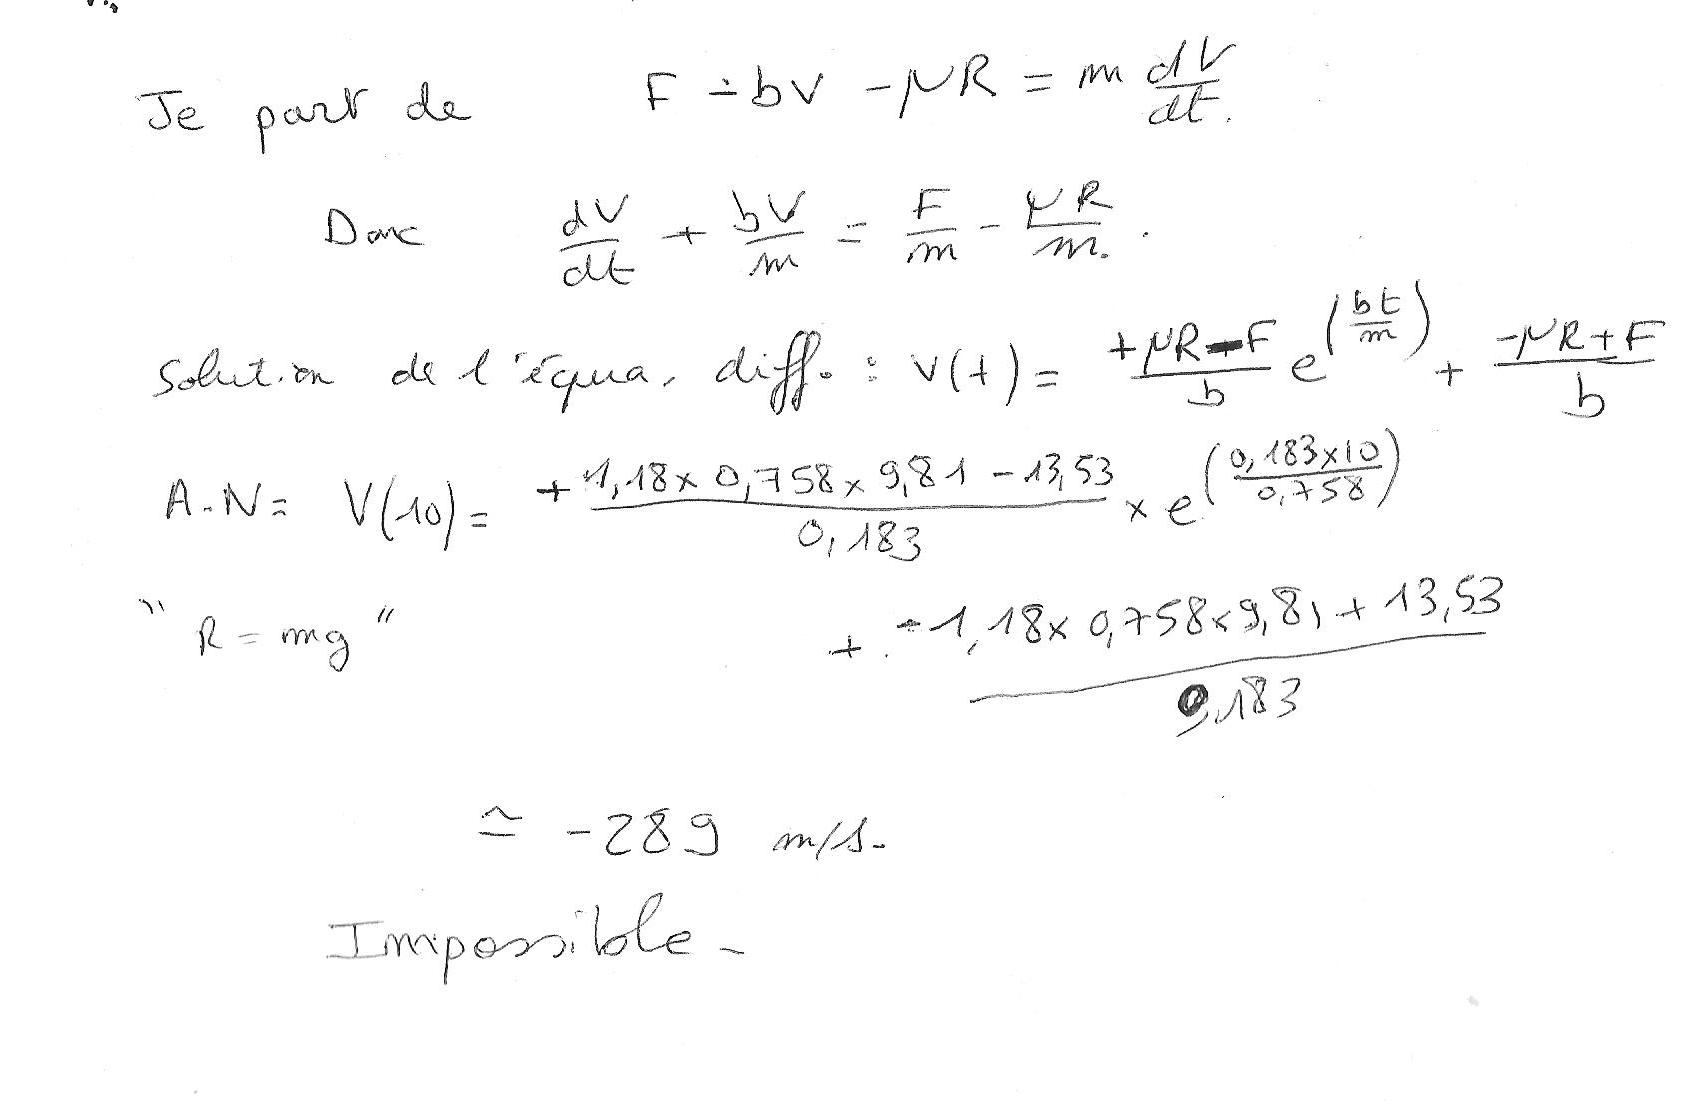 Je part de F - bV - μR = m dV/dt.
Donc dV/dt + bV/m = F/m - μR/m.
Solution de l'équa. diff. : V(t) = +μR-F/b e^(bt/m) + -μR+F/b
A.N = V(10) = +1,18 x 0,758 x 9,81 - 13,53/0,183 x e^(0,183x10/0,758)
"R = mg" + -1,18 x 0,758 x 9,81 + 13,53/0,183
≃ -289 m/s.
Impossible -